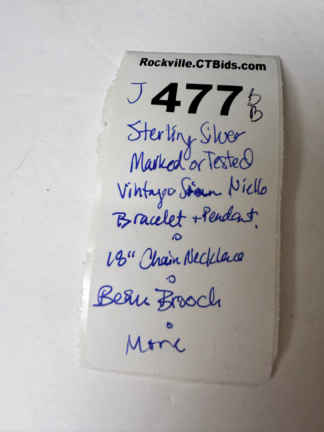 Rockville.CTBids.com
J 477 B
Sterling Silver
Marked or Tested
Vintage Siam Niello
Bracelet + Pendant.
18" Chain Necklace
Beau Brooch
More